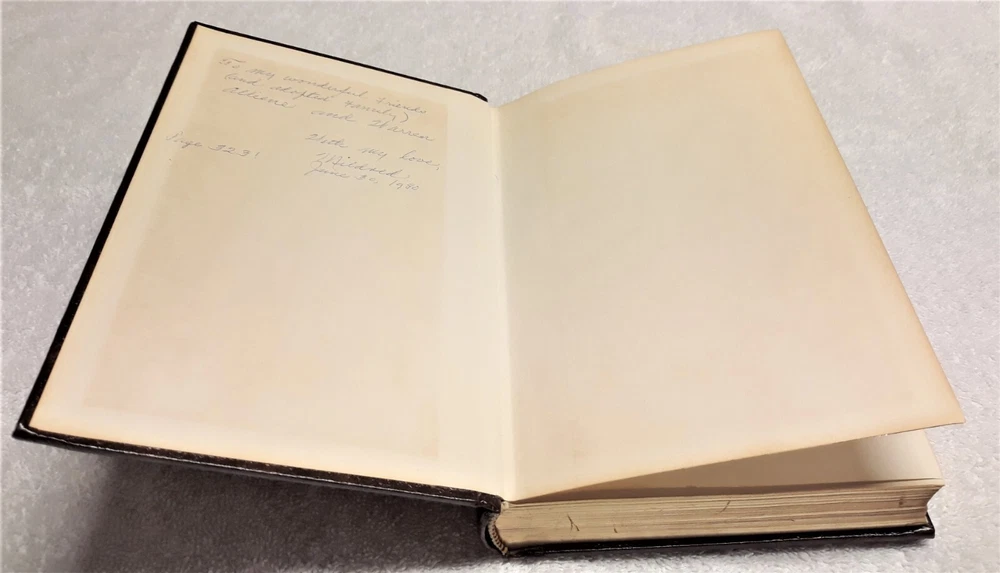 To my wonderful friends
(and adopted family)
Allene and Warren
With my love,
Mildred,
June
Page 323!